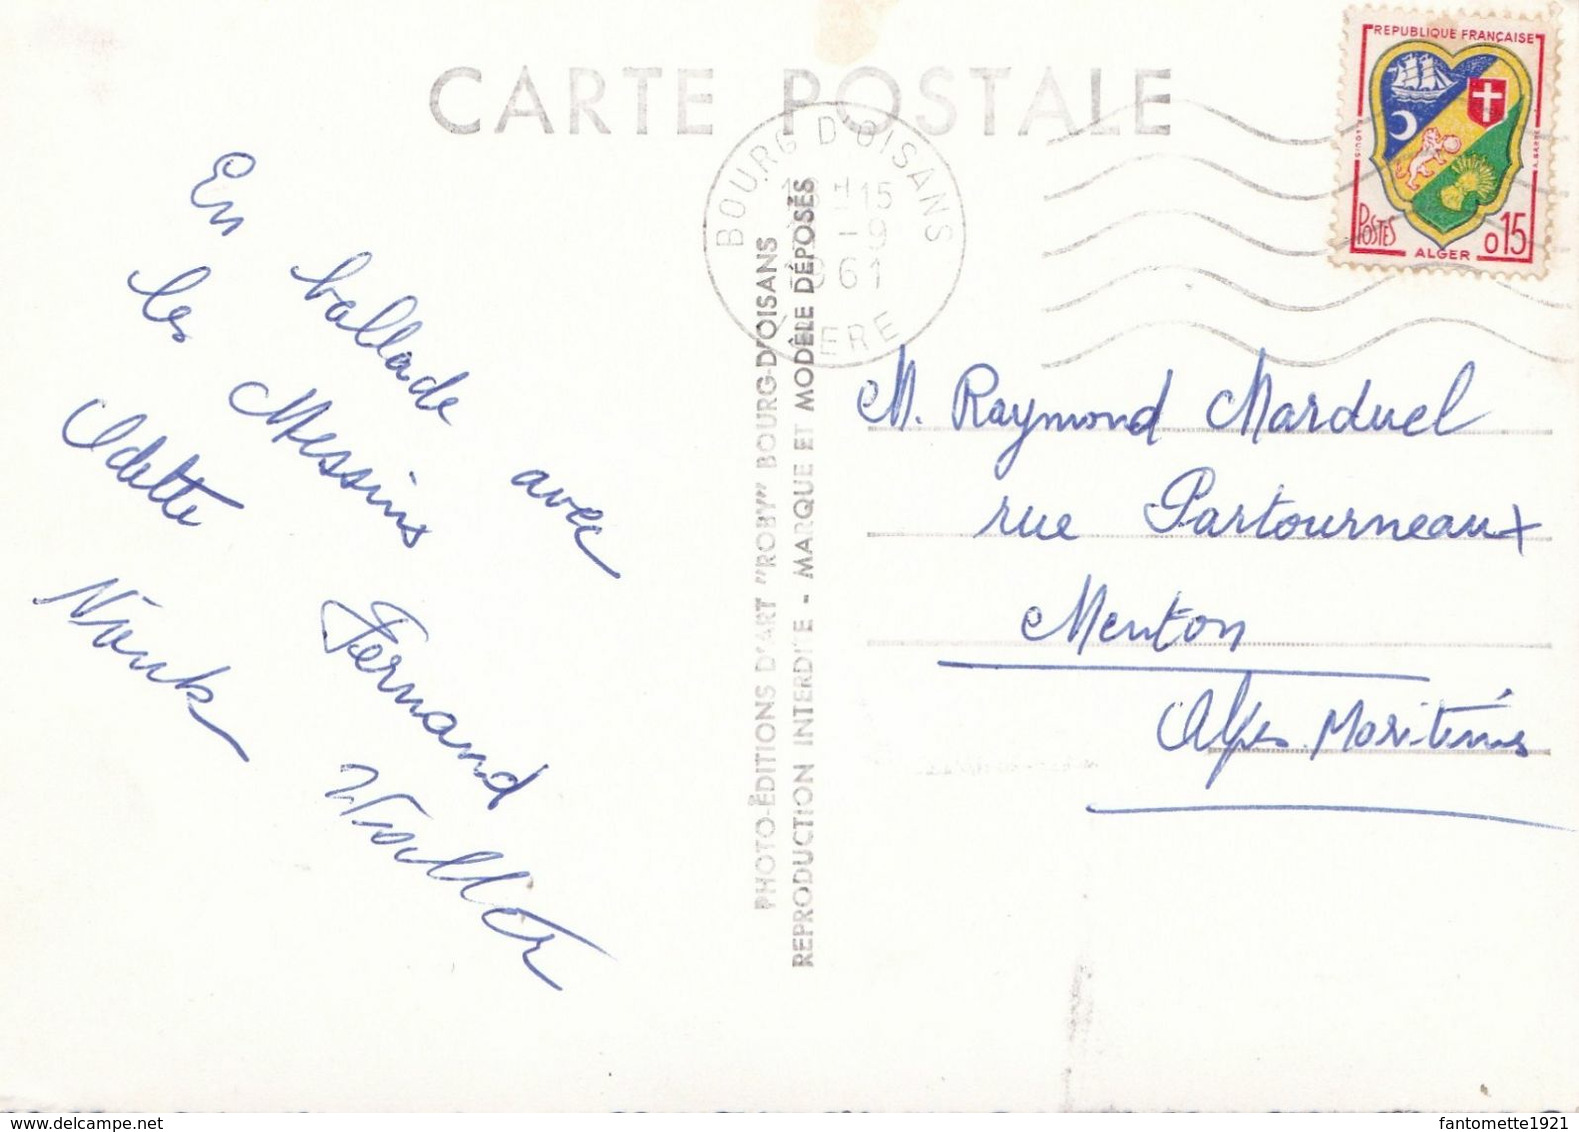 CARTE POSTALE
REPUBLIQUE FRANÇAISE
POSTES
ALGER
0,15
BOURG D'OISANS
15
-9
61
ISERE
En ballade avec
les Messins
Odette Fernand
Walter
PHOTO-ÉDITIONS D'ART "ROBY" BOURG-D'OISANS
REPRODUCTION INTERDITE - MARQUE ET MODÈLE DÉPOSÉS
M. Raymond Marduel
rue Partourneaux
Menton
Alpes Maritimes
fantomette1921